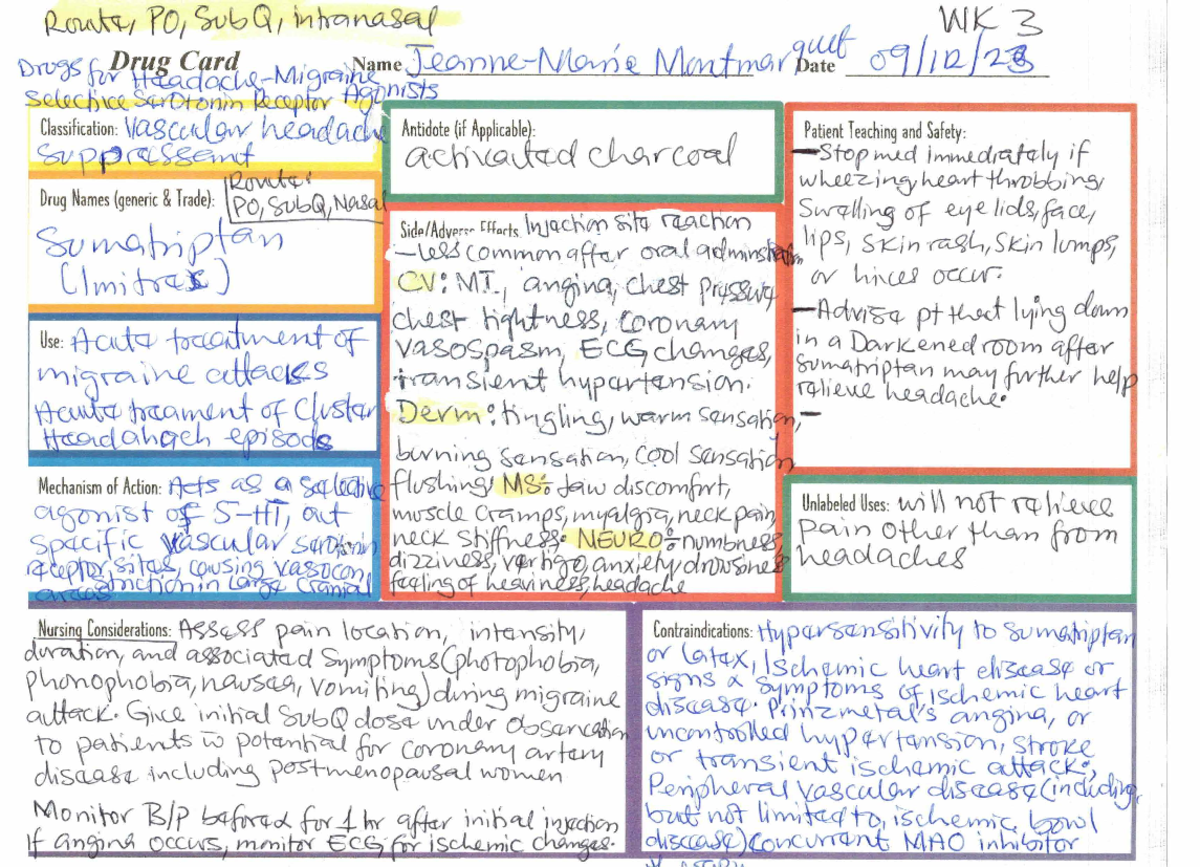 Route, PO, SubQ, intranasal
WK 3
Drug Card
Name Jeanne-Marie Montmarquet Date 09/12/23
Drugs for Headache-Migraine
Selective Serotonin Receptor Agonists
Classification: Vascular headache
suppressant
Drug Names (generic & Trade):
Route:
PO, SubQ, Nasal
Sumatriptan
(Imitrex)
Use: Acute treatment of
migraine attacks
Acute treament of Cluster
Headahach episods
Mechanism of Action: Acts as a selective
agonist of 5-HT, aut
specific vascular serotonin
receptor sites, causing vasocon
striction in large cranial
areas
Antidote (if Applicable):
activated charcoal
Side/Adverse Effects Injection site reaction
—less common after oral adminstration
CV: MI, angina, chest pressure
chest tightness, coronary
vasospasm, ECG changes,
transient hypertension.
Derm: tingling, warm sensation,
burning sensation, cool sensation
flushing, MS: Jaw discomfort,
muscle cramps, myalgia, neck pain,
neck stiffness. NEURO: numbness
dizziness, vertigo, anxiety, drowsiness
feeling of heaviness, headache
Patient Teaching and Safety:
—Stop med immediately if
wheezing, heart throbbing,
Swelling of eye lids, face,
lips, skin rash, skin lumps,
or hives occur.
—Advise pt that lying down
in a Darkened room after
sumatriptan may further help
relieve headache.
—
Unlabeled Uses: will not relieve
pain other than from
headaches
Nursing Considerations: Assess pain location, intensity,
duration, and associated Symptoms (photophobia,
phonophobia, nausea, vomiting) during migraine
attack. Give initial SubQ dose under observation
to patients w potential for coronary artery
disease including postmenopausal women
Monitor B/p before & for 1 hr after initial injection
If angina occurs, monitor ECG for ischemic changes.
Contraindications: Hypersensitivity to sumatriptan
or latex, Ischemic heart disease or
signs & symptoms of ischemic heart
disease. Prinzmetal's angina, or
uncontrolled hypertension, stroke
or transient ischemic attack;
Peripheral vascular disease (including,
but not limited to, ischemic bowl
disease) Concurrent MAO inhibitor